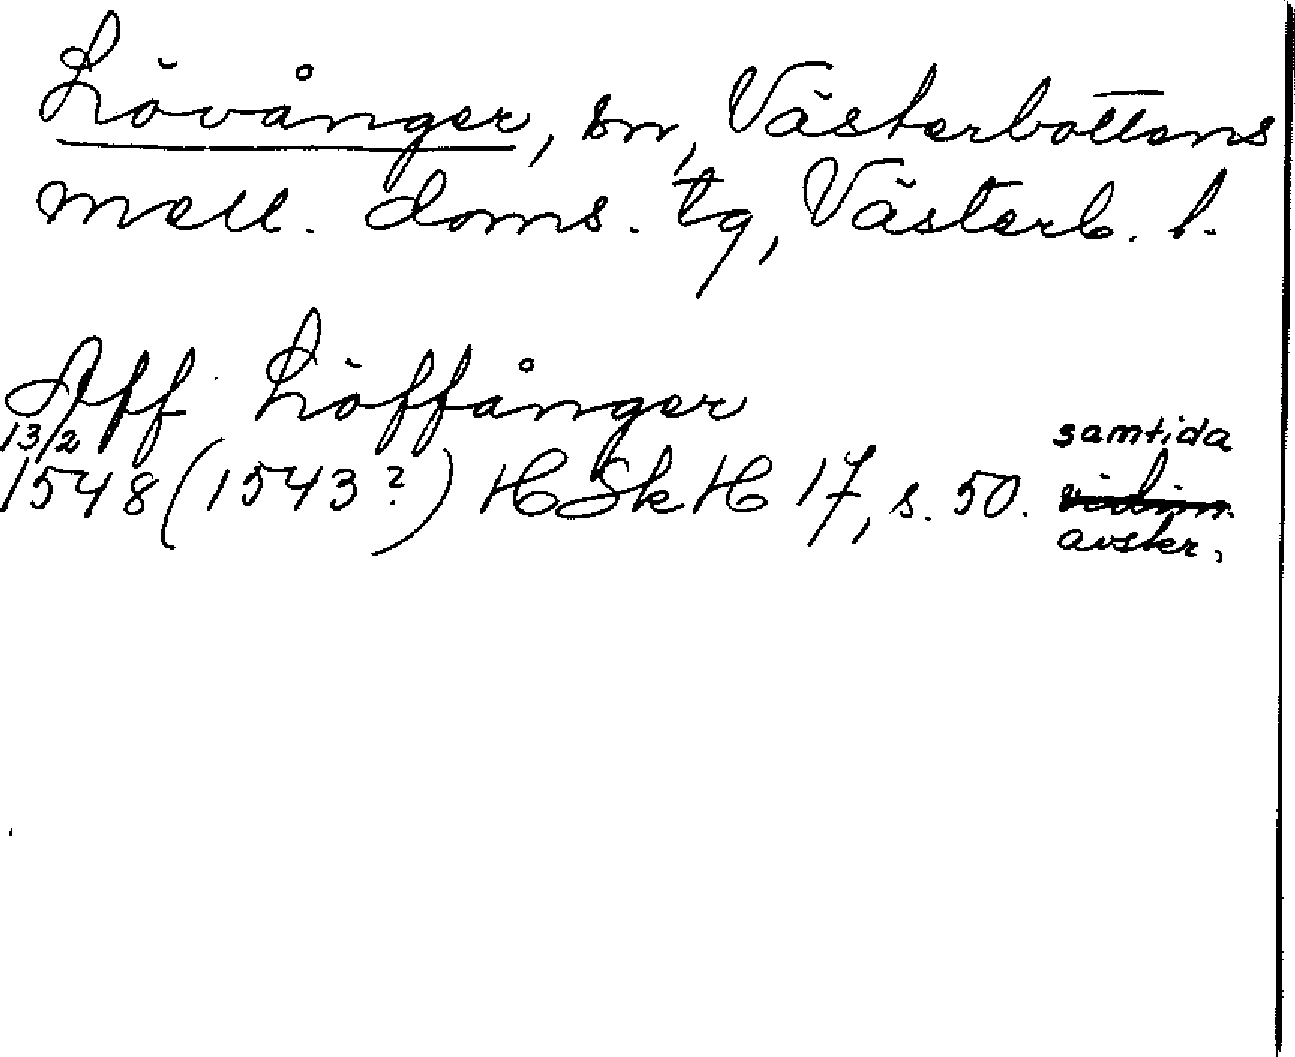 Lövånger, sn, Västerbottens
mell. doms. tg, Västerb. l.
Aff Löffånger
13/2
1548 (1543?) HSkH 17, s. 50. samtida
vidim.
avskr.